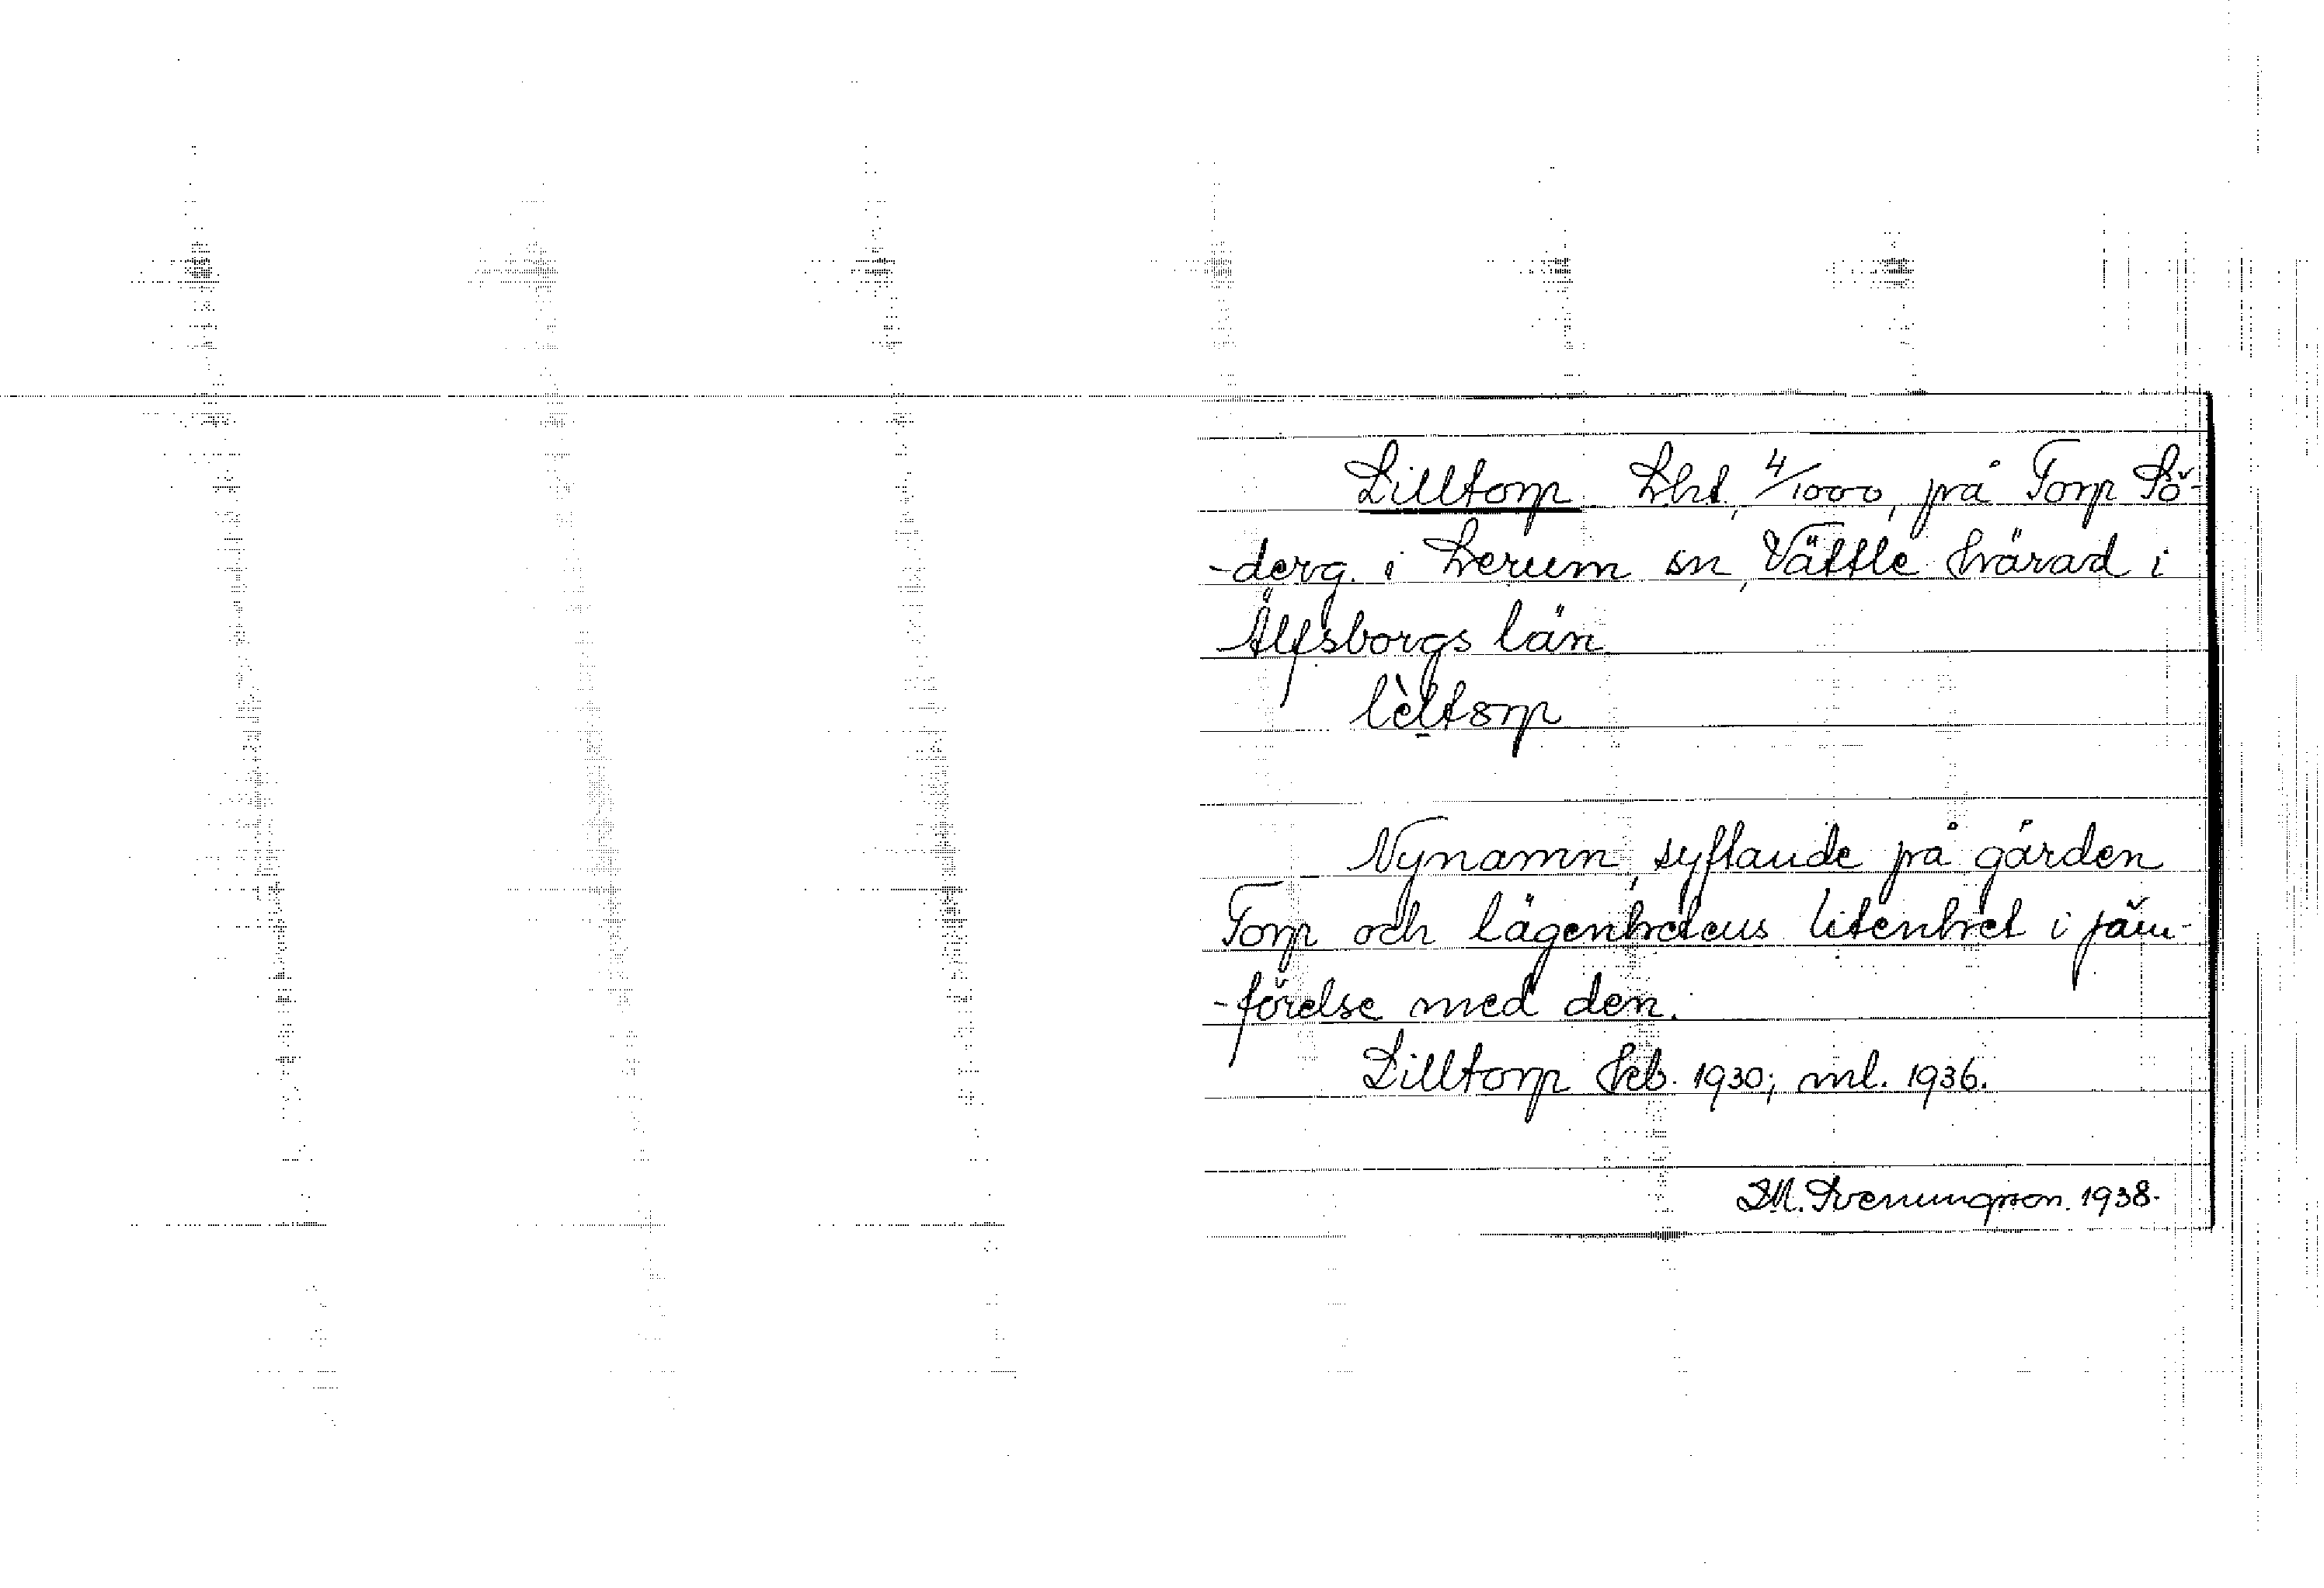 Lilltorp. Lht, 4/1000, på Torp Sö-
-derg. i Lerum sn, Vättle härad i
Älfsborgs län.
lèltorp
Nynamn, syftande på gården
Torp och lägenhetens litenhet i jäm-
-förelse med den.
Lilltorp hfb. 1930; ml. 1936.
D.M. Svenungsson. 1938.